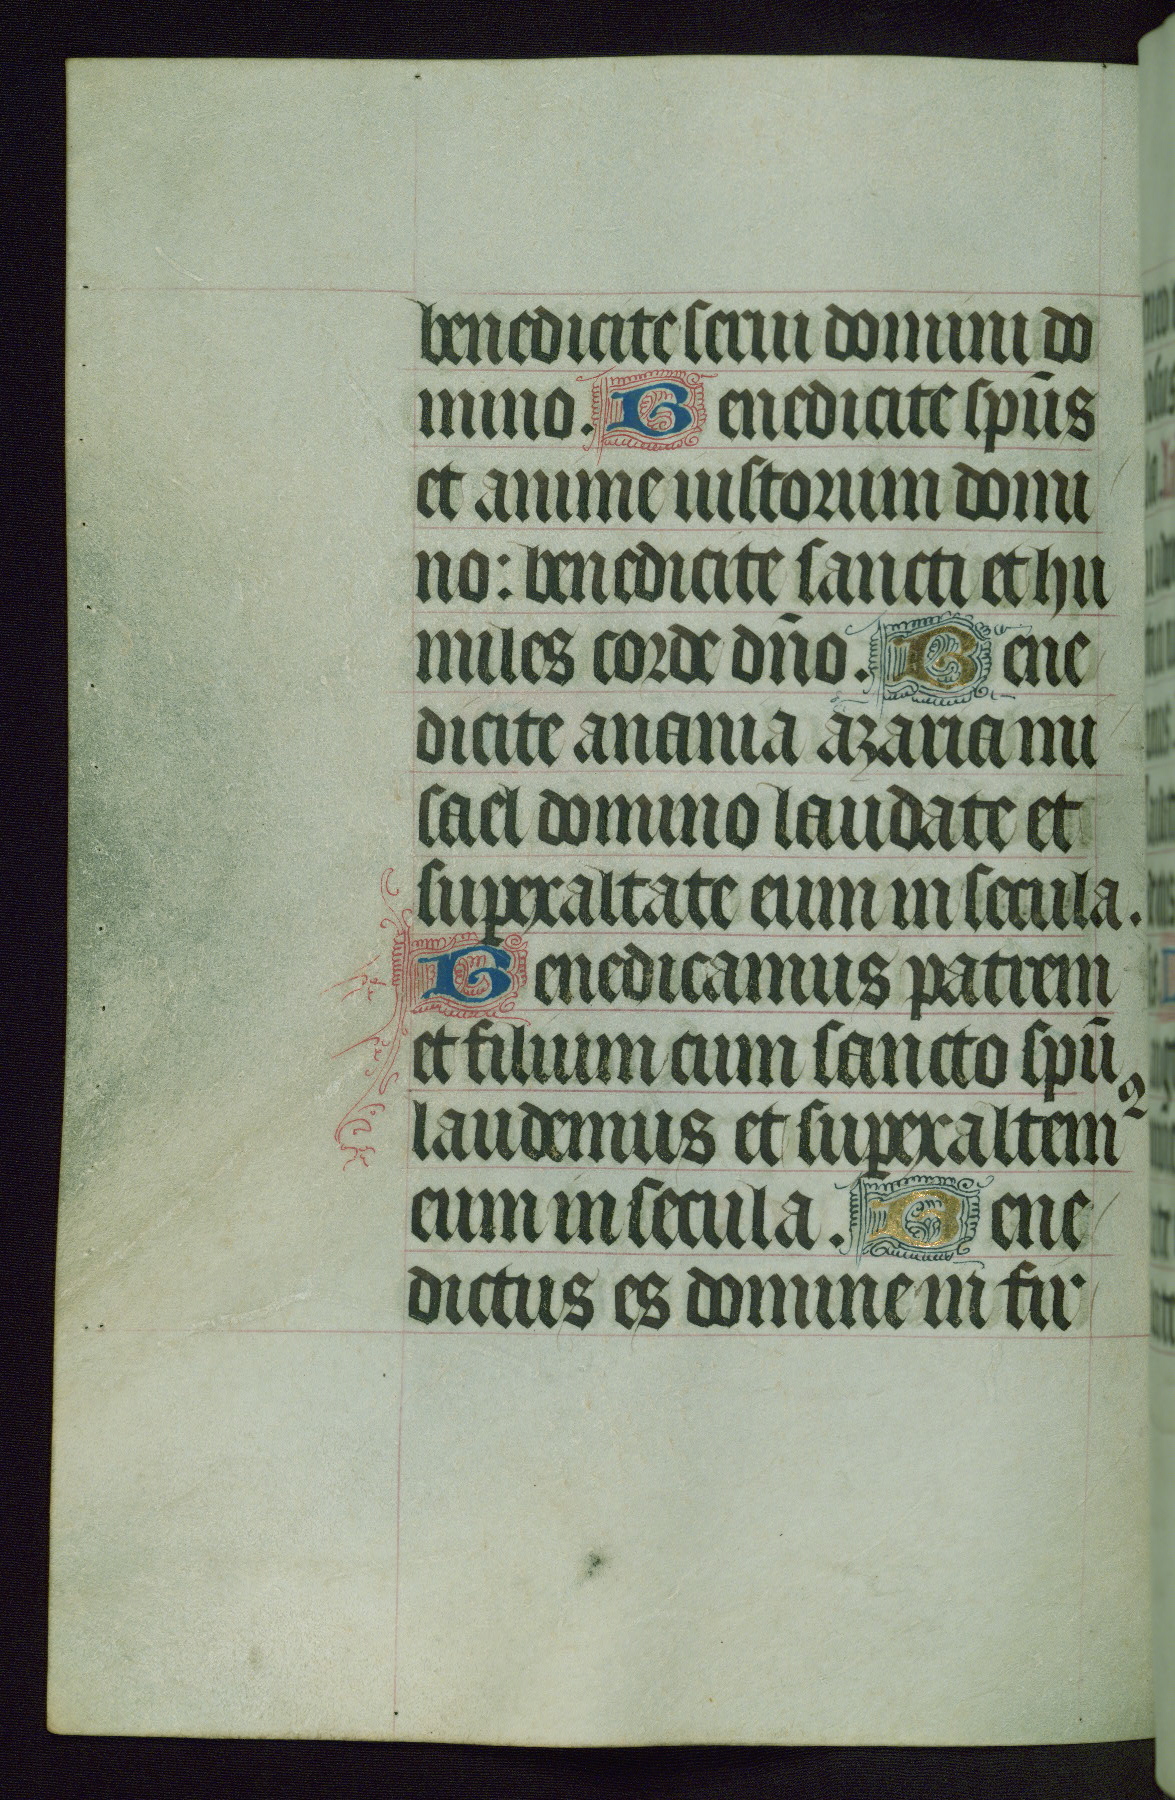 benedicite serui domini do
mino. Benedicite sp̄us
et anime iustorum domi
no: benedicite sancti et hu
miles corde dn̄o. Bene
dicite anania azaria mi
sael domino laudate et
superexaltate eum in secula.
Benedicamus patrem
et filium cum sancto sp̄u
laudemus et superexaltem⁹
eum in secula. Bene
dictus es domine in fir